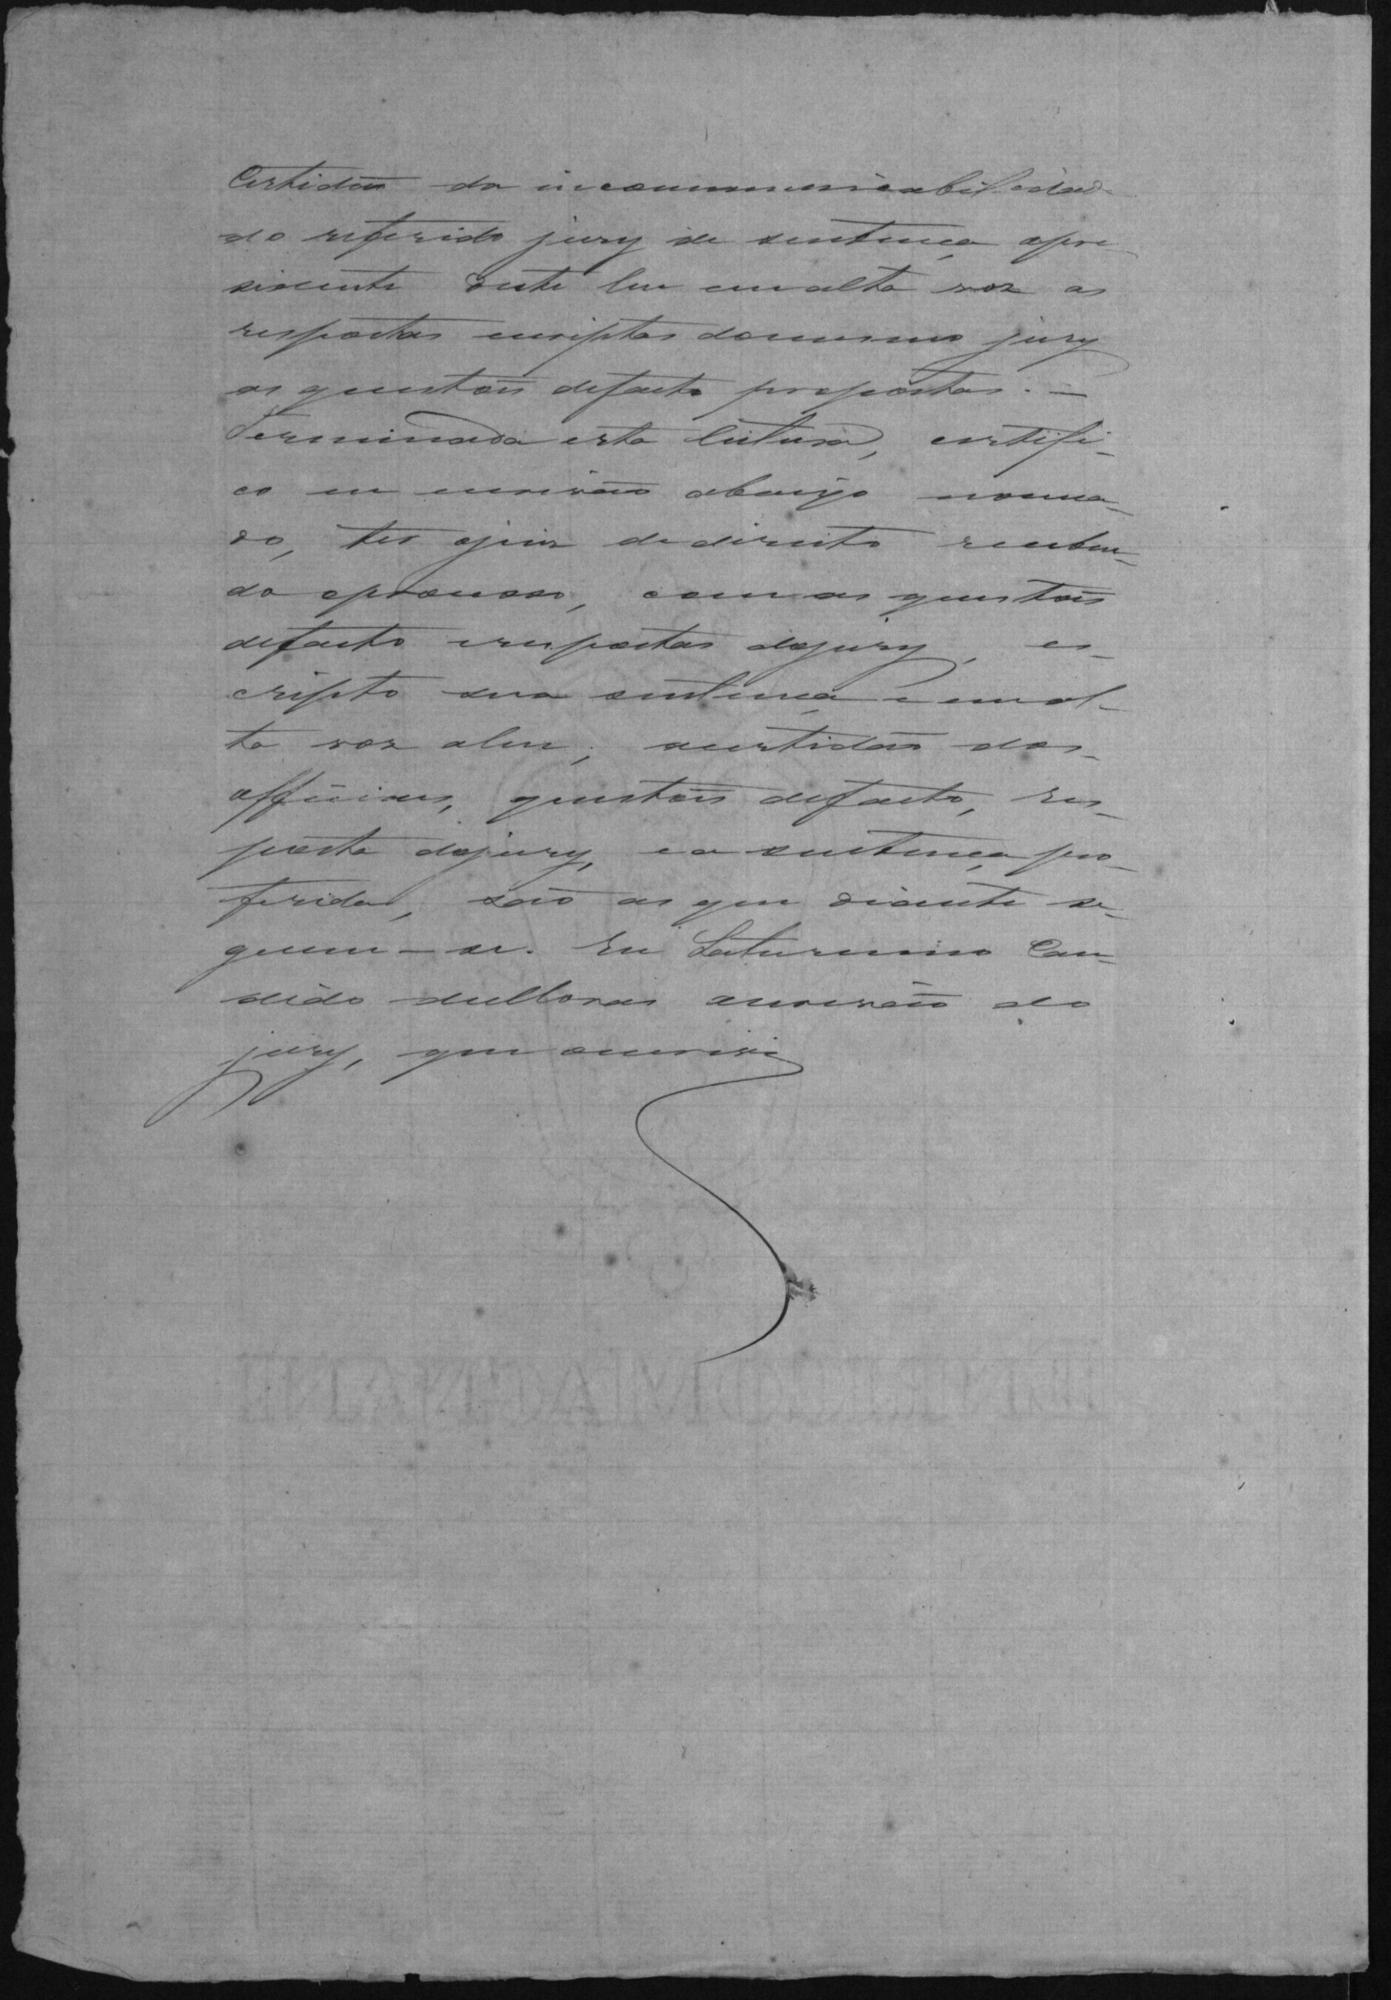 Certidão da incommunicabilidade
do referido jury de sentença, o pre
sidente deste leu em alta voz as
respostas escriptas do mesmo jury
as questões de facto propostas. —
Terminada esta leitura, certifi-
co eu escrivão abaixo nomea-
do, ter o juiz de direito receben-
do o processo, com as questões
de facto e respostas do jury, es-
cripto sua sentença e em al-
ta voz a leu; a certidão dos
officiaes, questões de facto, res-
posta do jury, e a sentença pro-
ferida, são as que diante se-
guem-se. Eu Saturnino Can-
dido escrivão do
jury, que o escrivi